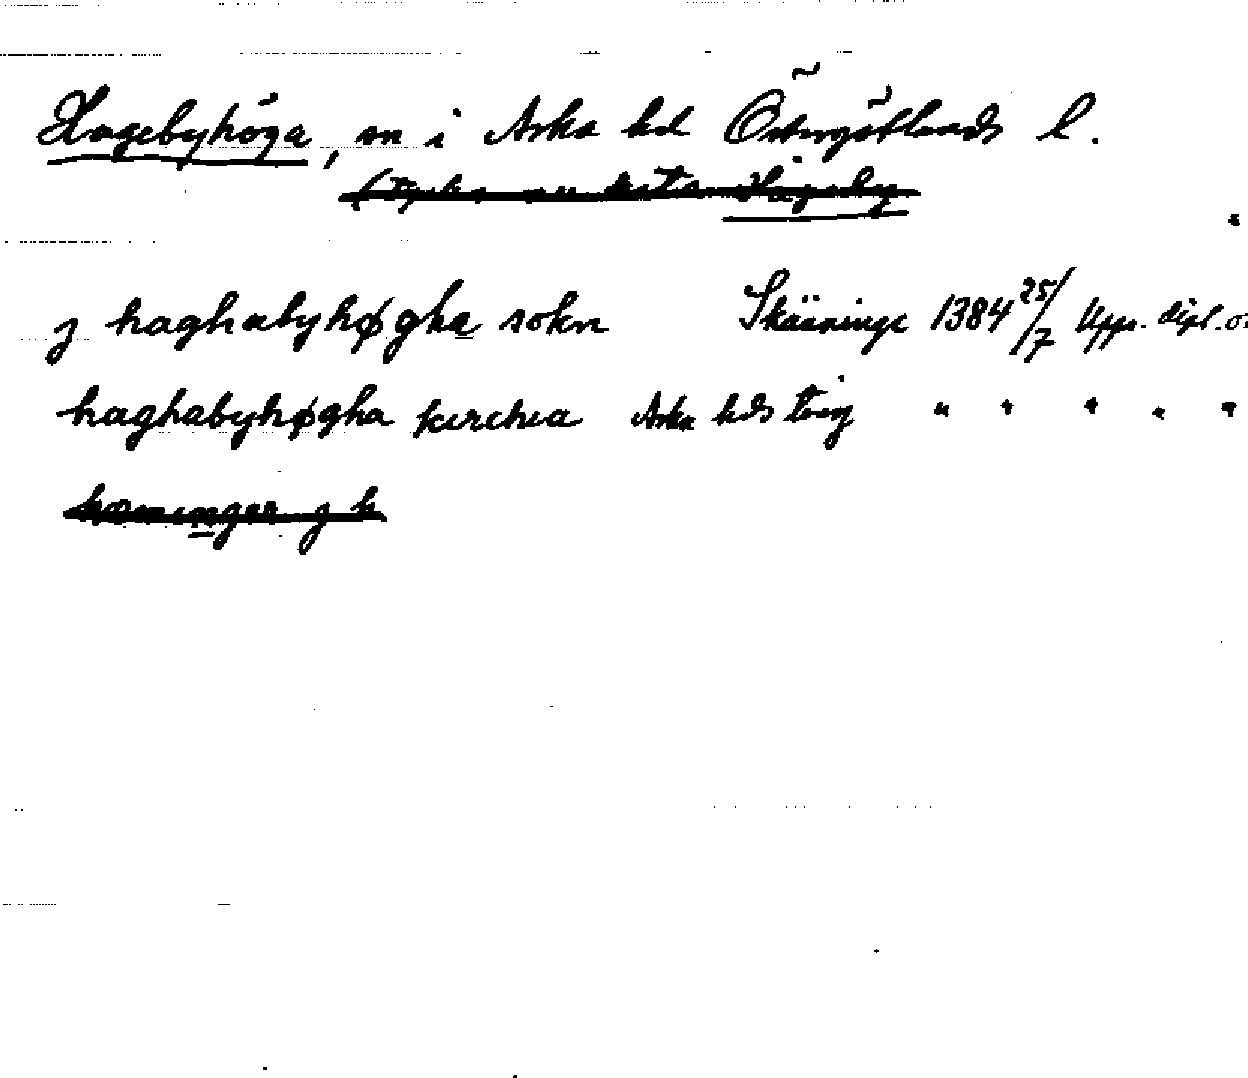 Hagebyhöga, sn i Aska hd Östergötlands l.
j haghabyhøgha sokn Skänninge 1384 25/7 Upps. dipl. or
haghabyhøgha kirchia Aska hds ting " " " " "